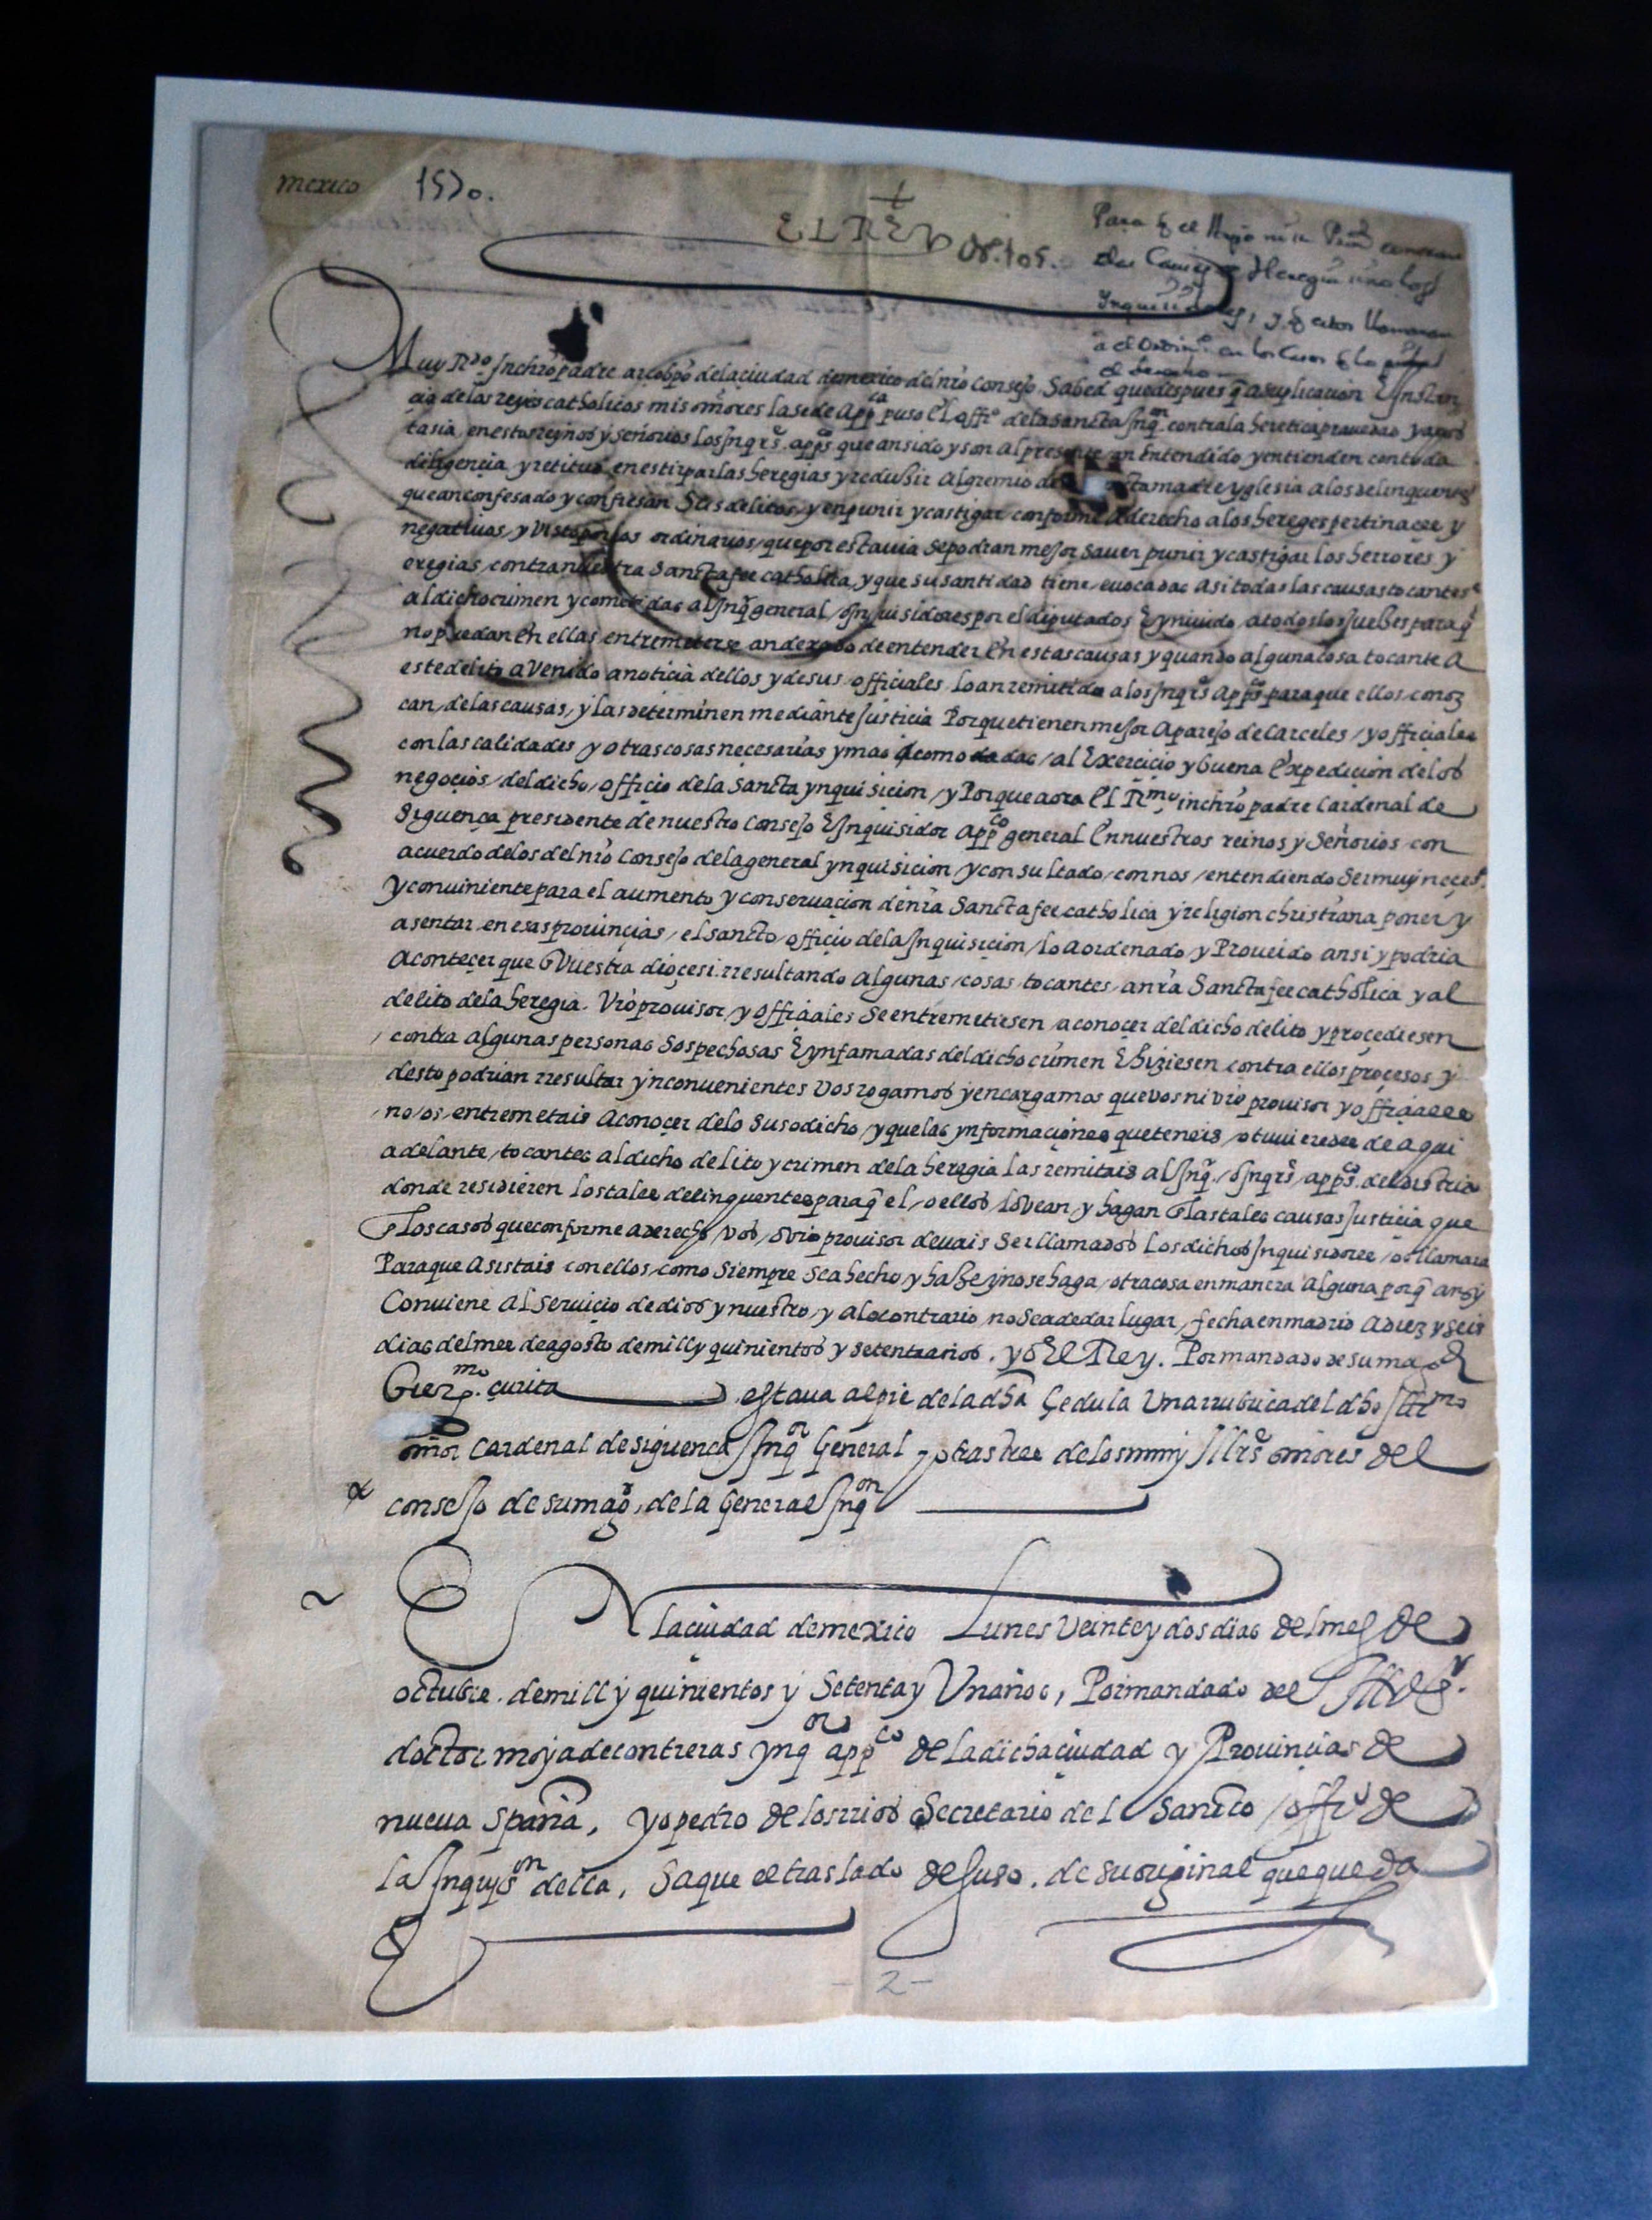 mexico 1570.
EL REY
Para q el
Inquisidores, y q estos llamaran
a el Ordin.o en los Casos q lo
el derecho
Muy Rdo Inchro padre arcobpo dela ciudad de mexico del nro consejo. Sabed que despues q a suplicacion E ynstan
cia delos reyes catholicos mis señores la sede app.ca puso El offi.o dela sancta Inq.on contra la heretica prauedad y apos
tasia, en estos reynos y señorios los Inqrs. apps. que an sido y son al presente an Entendido y entienden con toda
diligencia y retitud en estirpar las heregias y reduzir al gremio de la sancta madre yglesia a los delinquentes
que an confesado y confiesan sus delitos, y en punir y castigar conforme a derecho a los hereges pertinaces y
negatiuos, y visto por los ordinarios, que por esta uia se podran mejor sauer punir y castigar los herrores y
eregias, contra nuestra sancta fee catholica, y que su santidad tiene, euocadas asi todas las causas tocantes
al dicho crimen y cometidas al Inqr general, o Inquisidores por el diputados E yniuido, a todos los Juezes para q
no puedan En ellas entremeterse an dexado de entender En estas causas y quando alguna cosa tocante a
este delito a venido a noticia dellos y de sus officiales lo an remitido a los Inqrs apps para que ellos conoz
can, de las causas, y las determinen mediante Justicia Porque tienen mejor aparejo de carceles, y officiales
con las calidades y otras cosas necesarias y mas acomodadas, al Exercicio y buena Expedicion de los
negocios, del dicho, officio dela sancta ynquisicion, y Porque aora El Rmo inchro padre Cardenal de
Siguença presidente de nuestro consejo E Inquisidor app.co general En nuestros reinos y señorios con
acuerdo delos del nro Consejo dela general ynquisicion y consultado, con nos, entendiendo ser muy neces.o
y conuiniente para el aumento y conseruacion de nra Sancta fee catholica y religion christiana poner y
asentar, en esas prouincias, el sancto, officio dela Inquisicion, lo a ordenado, y Proueido ansi y podria
acontecer que En vuestra diocesi. rresultando algunas, cosas, tocantes, a nra Sancta fee catholica y al
delito dela heregia. Vro prouisor, y officiales se entremetiesen a conocer del dicho delito y procediesen
contra algunas personas sospechosas E ynfamadas del dicho crimen E hiziesen contra ellos procesos y
desto podrian rresultar ynconuenientes vos rogamos y encargamos que vos ni vro prouisor y officiales
no, os, entremetais a conocer de lo susodicho, y que las ynformaciones que teneis, o tuuieredes de aqui
adelante, tocantes al dicho delito y crimen dela heregia las remitais al Inqr, o Inqrs, apps. del distrito
donde residieren los tales delinquentes para q el, o ellos lo vean, y hagan En las tales causas Justicia que
En los casos que conforme a derecho, vos, o vro prouisor deuais ser llamados los dichos Inquisidores, os llamaran
Para que asistais con ellos, como siempre se a hecho y haze y no se haga, otra cosa en manera alguna porq ansi
Conuiene al seruicio de dios y nuestro, y alo contrario no se a de dar lugar, fecha en madrid a diez y seis
dias del mes de agosto de mill y quinientos y setenta años. yo El Rey. Por mandado de su mag.d
Hierp.mo çurita estaua al pie de la dha çedula vna rrubrica del dho Illmo
señor cardenal de siguença Inq.or General y otras tres de los muy Illrs señores del
consejo de su magd, de la General Inq.on
En la ciudad de mexico Lunes veinte y dos dias del mes de
octubre. de mill y quinientos y Setenta y Un años, Por mandado del Ille Sr.
doctor moya de contreras ynq.or app.co de la dicha ciudad y Prouincias de
nueua spaña, yo pedro de los rrios Secretario del Sancto offi.o de
la Inquis.on della, saque el traslado de suso. de su original que queda
- 2 -